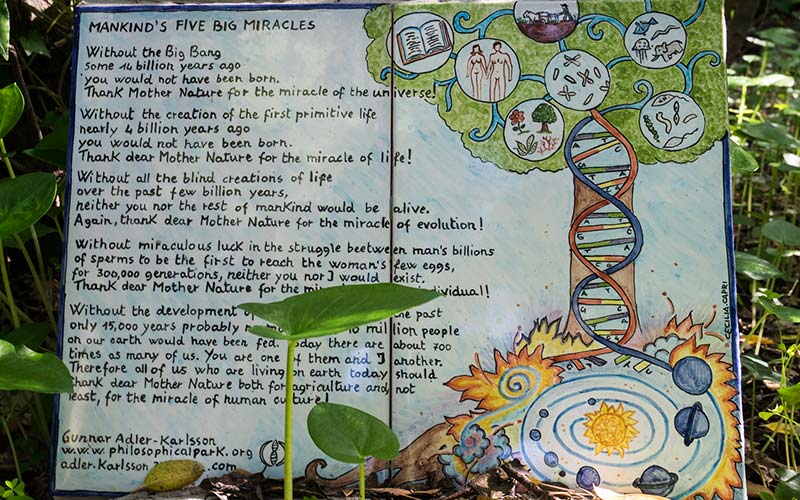 MANKIND'S FIVE BIG MIRACLES
Without the Big Bang
some 14 billion years ago
you would not have been born.
Thank Mother Nature for the miracle of the universe!
Without the creation of the first primitive life
nearly 4 billion years ago
you would not have been born.
Thank dear Mother Nature for the miracle of life!
Without all the blind creations of life
over the past few billion years,
neither you nor the rest of mankind would be alive.
Again, thank dear Mother Nature for the miracle of evolution!
Without miraculous luck in the struggle beetween man's billions
of sperms to be the first to reach the woman's few eggs,
for 300,000 generations, neither you nor I would exist.
Thank dear Mother Nature for the individual!
Without the development the past
only 15,000 years probably million people
on our earth would have been fed. Today there are about 700
times as many of us. You are one of them and I another.
Therefore all of us who are living on earth today should
thank dear Mother Nature both for agriculture and, not
least, for the miracle of human culture!
Gunnar Adler-Karlsson
www.philosophicalpark.org
adler.karlsson .com
CECILIA CAPRI